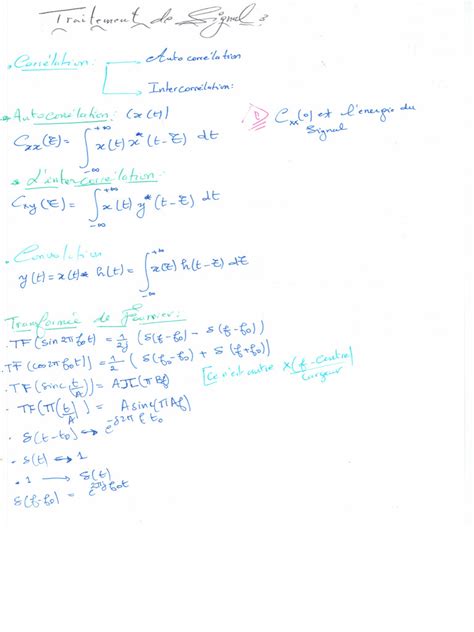 Traitement de Signal :
. Corrélation :
Auto corrélation
Intercorrélation :
* Autocorrélation : (x(t))
Cxx(τ) = ∫_{-∞}^{+∞} x(t) x*(t-τ) dt
Cxx(0) est l'énergie du
Signal
* L'intercorrélation :
Cxy(τ) = ∫_{-∞}^{+∞} x(t) y*(t-τ) dt
. Convolution
y(t) = x(t) * h(t) = ∫_{-∞}^{+∞} x(τ) h(t-τ) dτ
Transformée de Fourrier :
. TF(sin 2π f₀t) = 1/2j (δ(f-f₀) - δ(f-f₀))
. TF(cos 2π f₀t) = 1/2 (δ(f₀-f₀) + δ(f+f₀))
. TF(sinc(t/A)) = A Π(π Bf)
[Ce n'est autre X(f-Centre)/Largeur
. TF(Π(t/A)) = A sinc(π A f)
. δ(t-t₀) ↔ e^{-j2π f t₀}
. δ(t) ↔ 1
. 1 → δ(t)
δ(f-f₀) = e^{2πj f₀t}